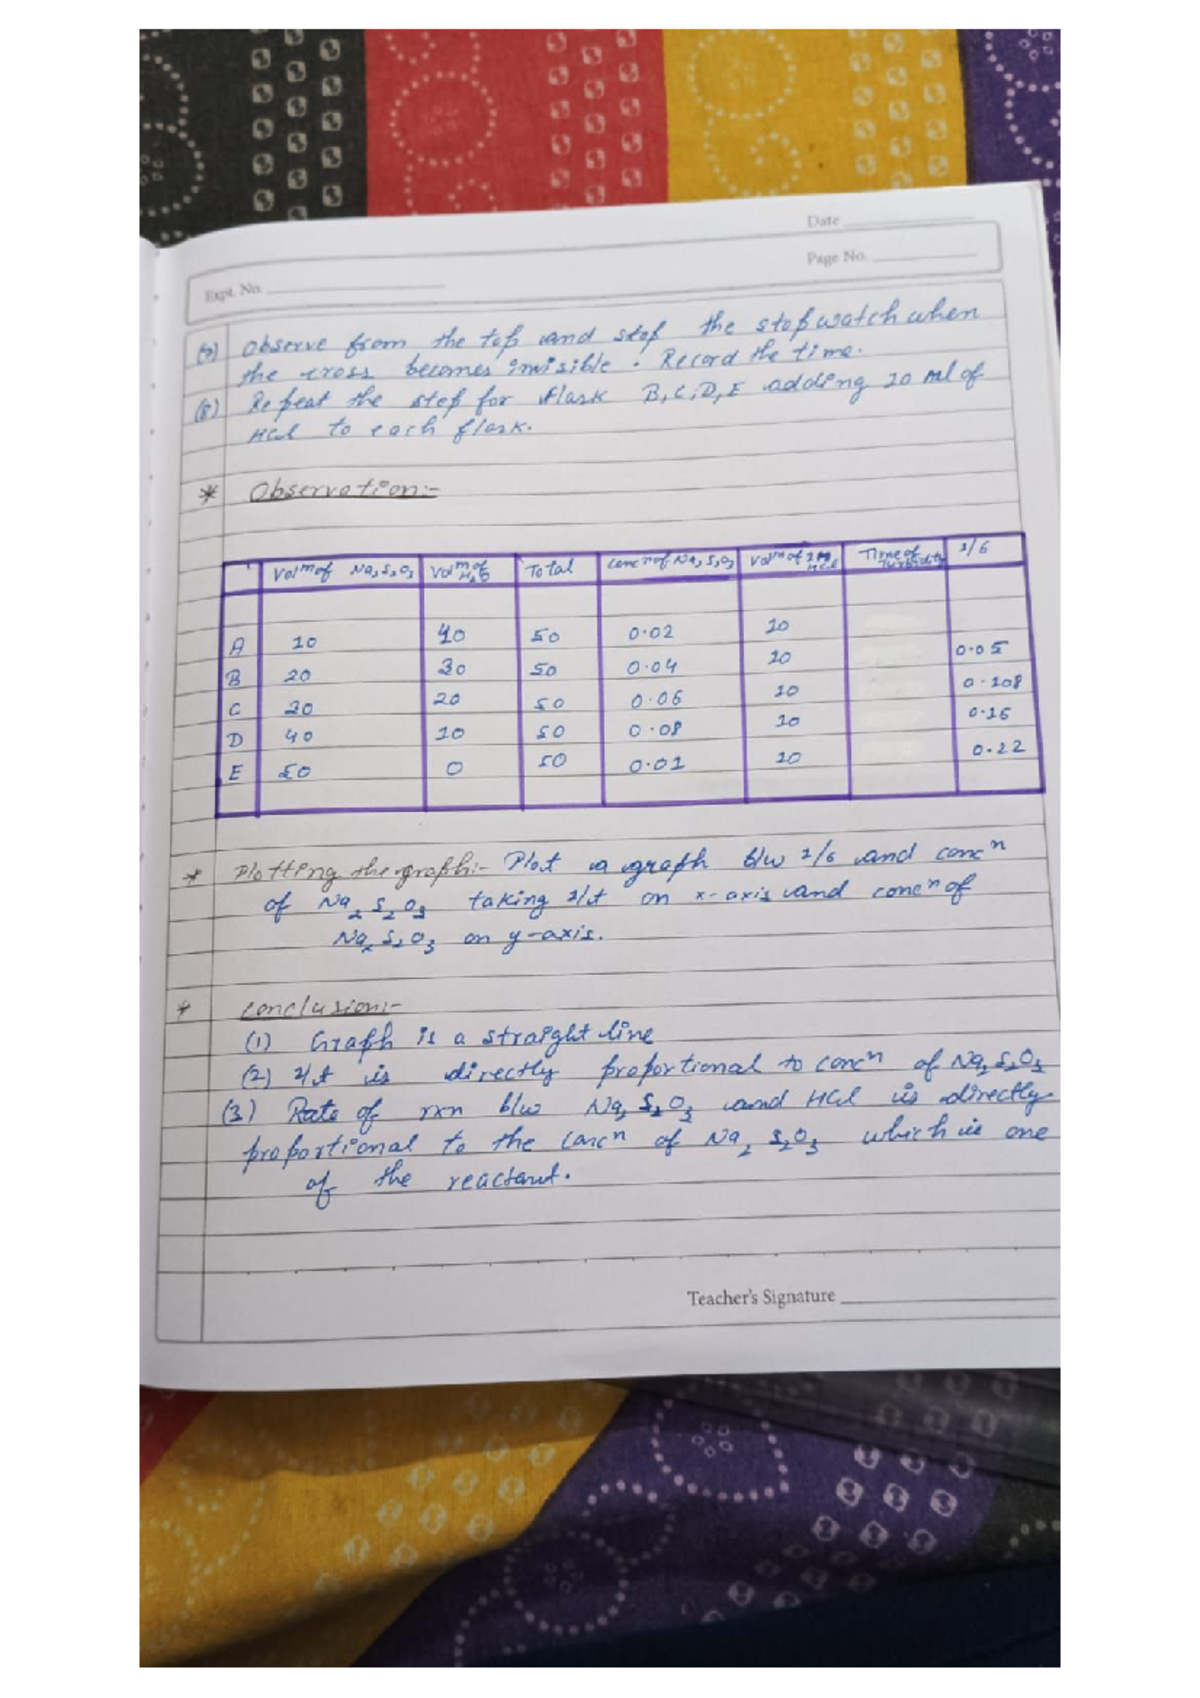 Date
Page No.
Expt. No.
(7) Observe from the top and stop the stopwatch when
the cross becomes invisible. Record the time.
(8) Repeat the step for flask B, C, D, E adding 10 ml of
HCl to each flask.
* Observation:-
Volm of Na2S2O3 Volm of H2O Total Concn of Na2S2O3 Volm of 1M HCl Time of turbidity 1/t
A 10 40 50 0.02 10
B 20 30 50 0.04 10 0.05
C 30 20 50 0.06 10 0.108
D 40 10 50 0.08 10 0.16
E 50 0 50 0.01 10 0.22
* Plotting the graph:- Plot a graph b/w 1/t and concn
of Na2S2O3 taking 1/t on x-axis and concn of
Na2S2O3 on y-axis.
* Conclusion:-
(1) Graph is a straight line
(2) 1/t is directly proportional to concn of Na2S2O3
(3) Rate of rxn b/w Na2S2O3 and HCl is directly
proportional to the concn of Na2S2O3 which is one
of the reactant.
Teacher's Signature